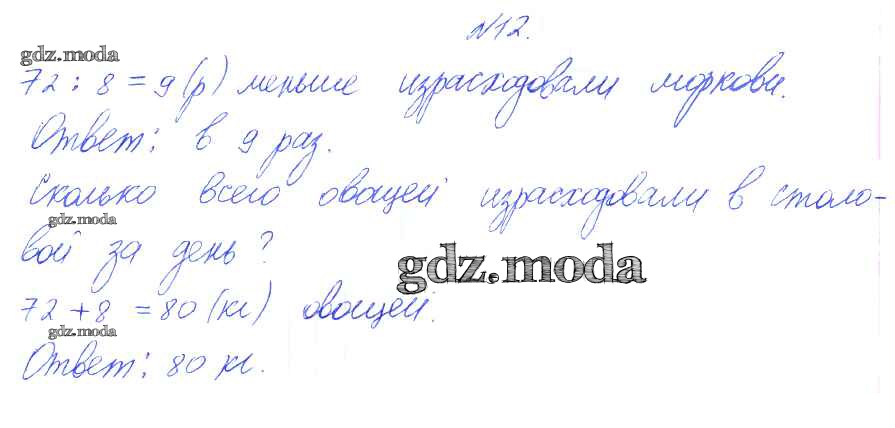 №12.
gdz.moda
72 : 8 = 9 (р) меньше израсходовали моркови.
Ответ: в 9 раз.
Сколько всего овощей израсходовали в столо-
gdz.moda
вой за день?
gdz.moda
72 + 8 = 80 (кг) овощей.
gdz.moda
Ответ: 80 кг.